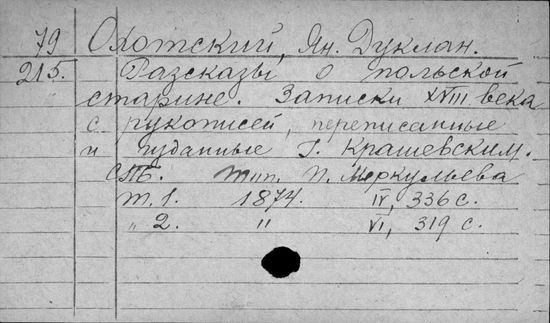 79 Охотский, Ян. Дуклан.
215. Разсказы о польской
старине. Записки XVIII века
с рукописей, переписанные
и изданные Г. Крашевским.
СПБ. Тип. П. Меркульева
т. 1. 1874. IV, 336 с.
„ 2. " VI, 319 с.